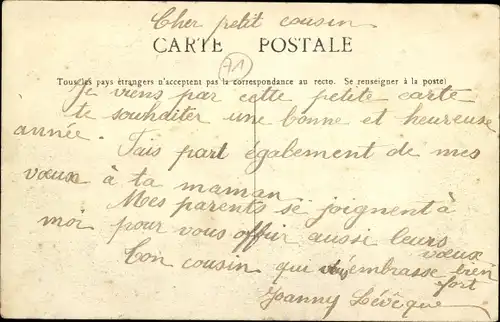 Cher petit cousin
CARTE POSTALE
71
Tous les pays étrangers n'acceptent pas la correspondance au recto. Se renseigner à la poste)
Je viens par cette petite carte
te souhaiter une bonne et heureuse
année. Fais part également de mes
vœux à ta maman.
Mes parents se joignent à
moi pour vous offrir aussi leurs
vœux
Ton cousin qui t'embrasse bien
fort
Lévêque